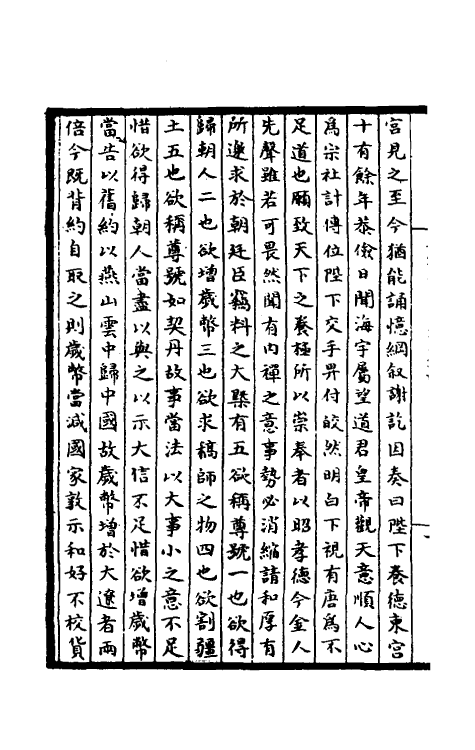 宮見之至今猶能誦憶綱叙謝訖因奏曰陛下養德東宮
十有餘年恭儉日聞海宇屬望道君皇帝觀天意順人心
爲宗社計傳位陛下交手畀付皎然明白下視有唐爲不
足道也願致天下之養極所以崇奉者以昭孝德今金人
先聲雖若可畏然聞有内禪之意事勢必消縮請和厚有
所邀求於朝廷臣竊料之大槩有五欲稱尊號一也欲得
歸朝人二也欲增歲幣三也欲求稿師之物四也欲割疆
土五也欲稱尊號如契丹故事當法以大事小之意不足
惜欲得歸朝人當盡以與之以示大信不足惜欲增歲幣
當告以舊約以燕山雲中歸中國故歲幣增於大遼者兩
倍今既背約自取之則歲幣當減國家敦示和好不校貨